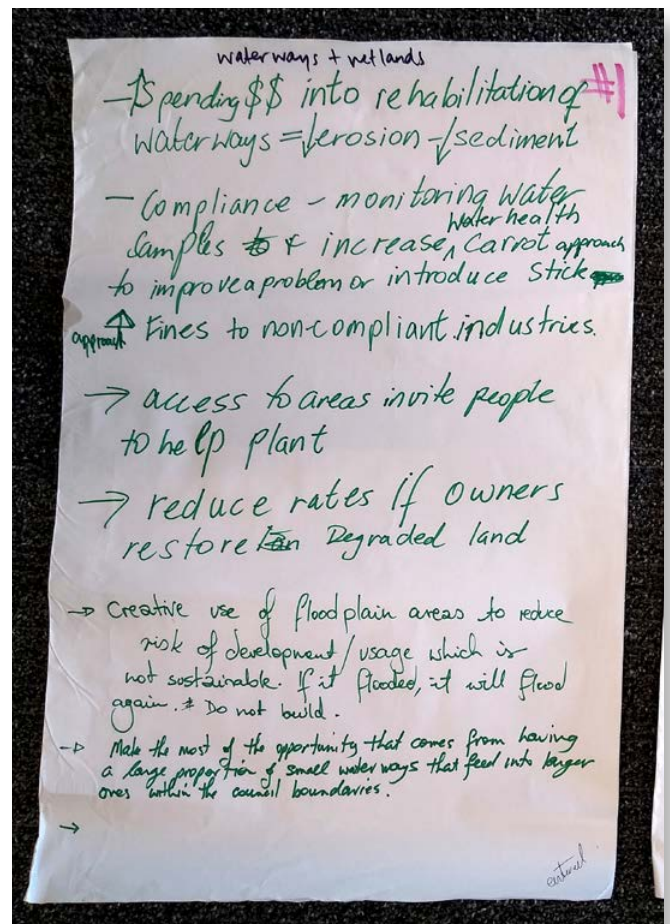 waterways + wetlands
#1
- ↑ Spending $$ into rehabilitation of
waterways = ↓ erosion - ↓ sediment
- Compliance - monitoring water
samples & increase ^ Water health Carrot approach
to improve a problem or introduce Stick
approach ↑ Fines to non-compliant industries.
→ access to areas invite people
to help plant
→ reduce rates if owners
restore Degraded land
→ Creative use of floodplain areas to reduce
risk of development/usage which is
not sustainable. If it flooded, it will flood
again. * Do not build.
→ Make the most of the opportunity that comes from having
a large proportion of small waterways that feed into larger
ones within the council boundaries.
→